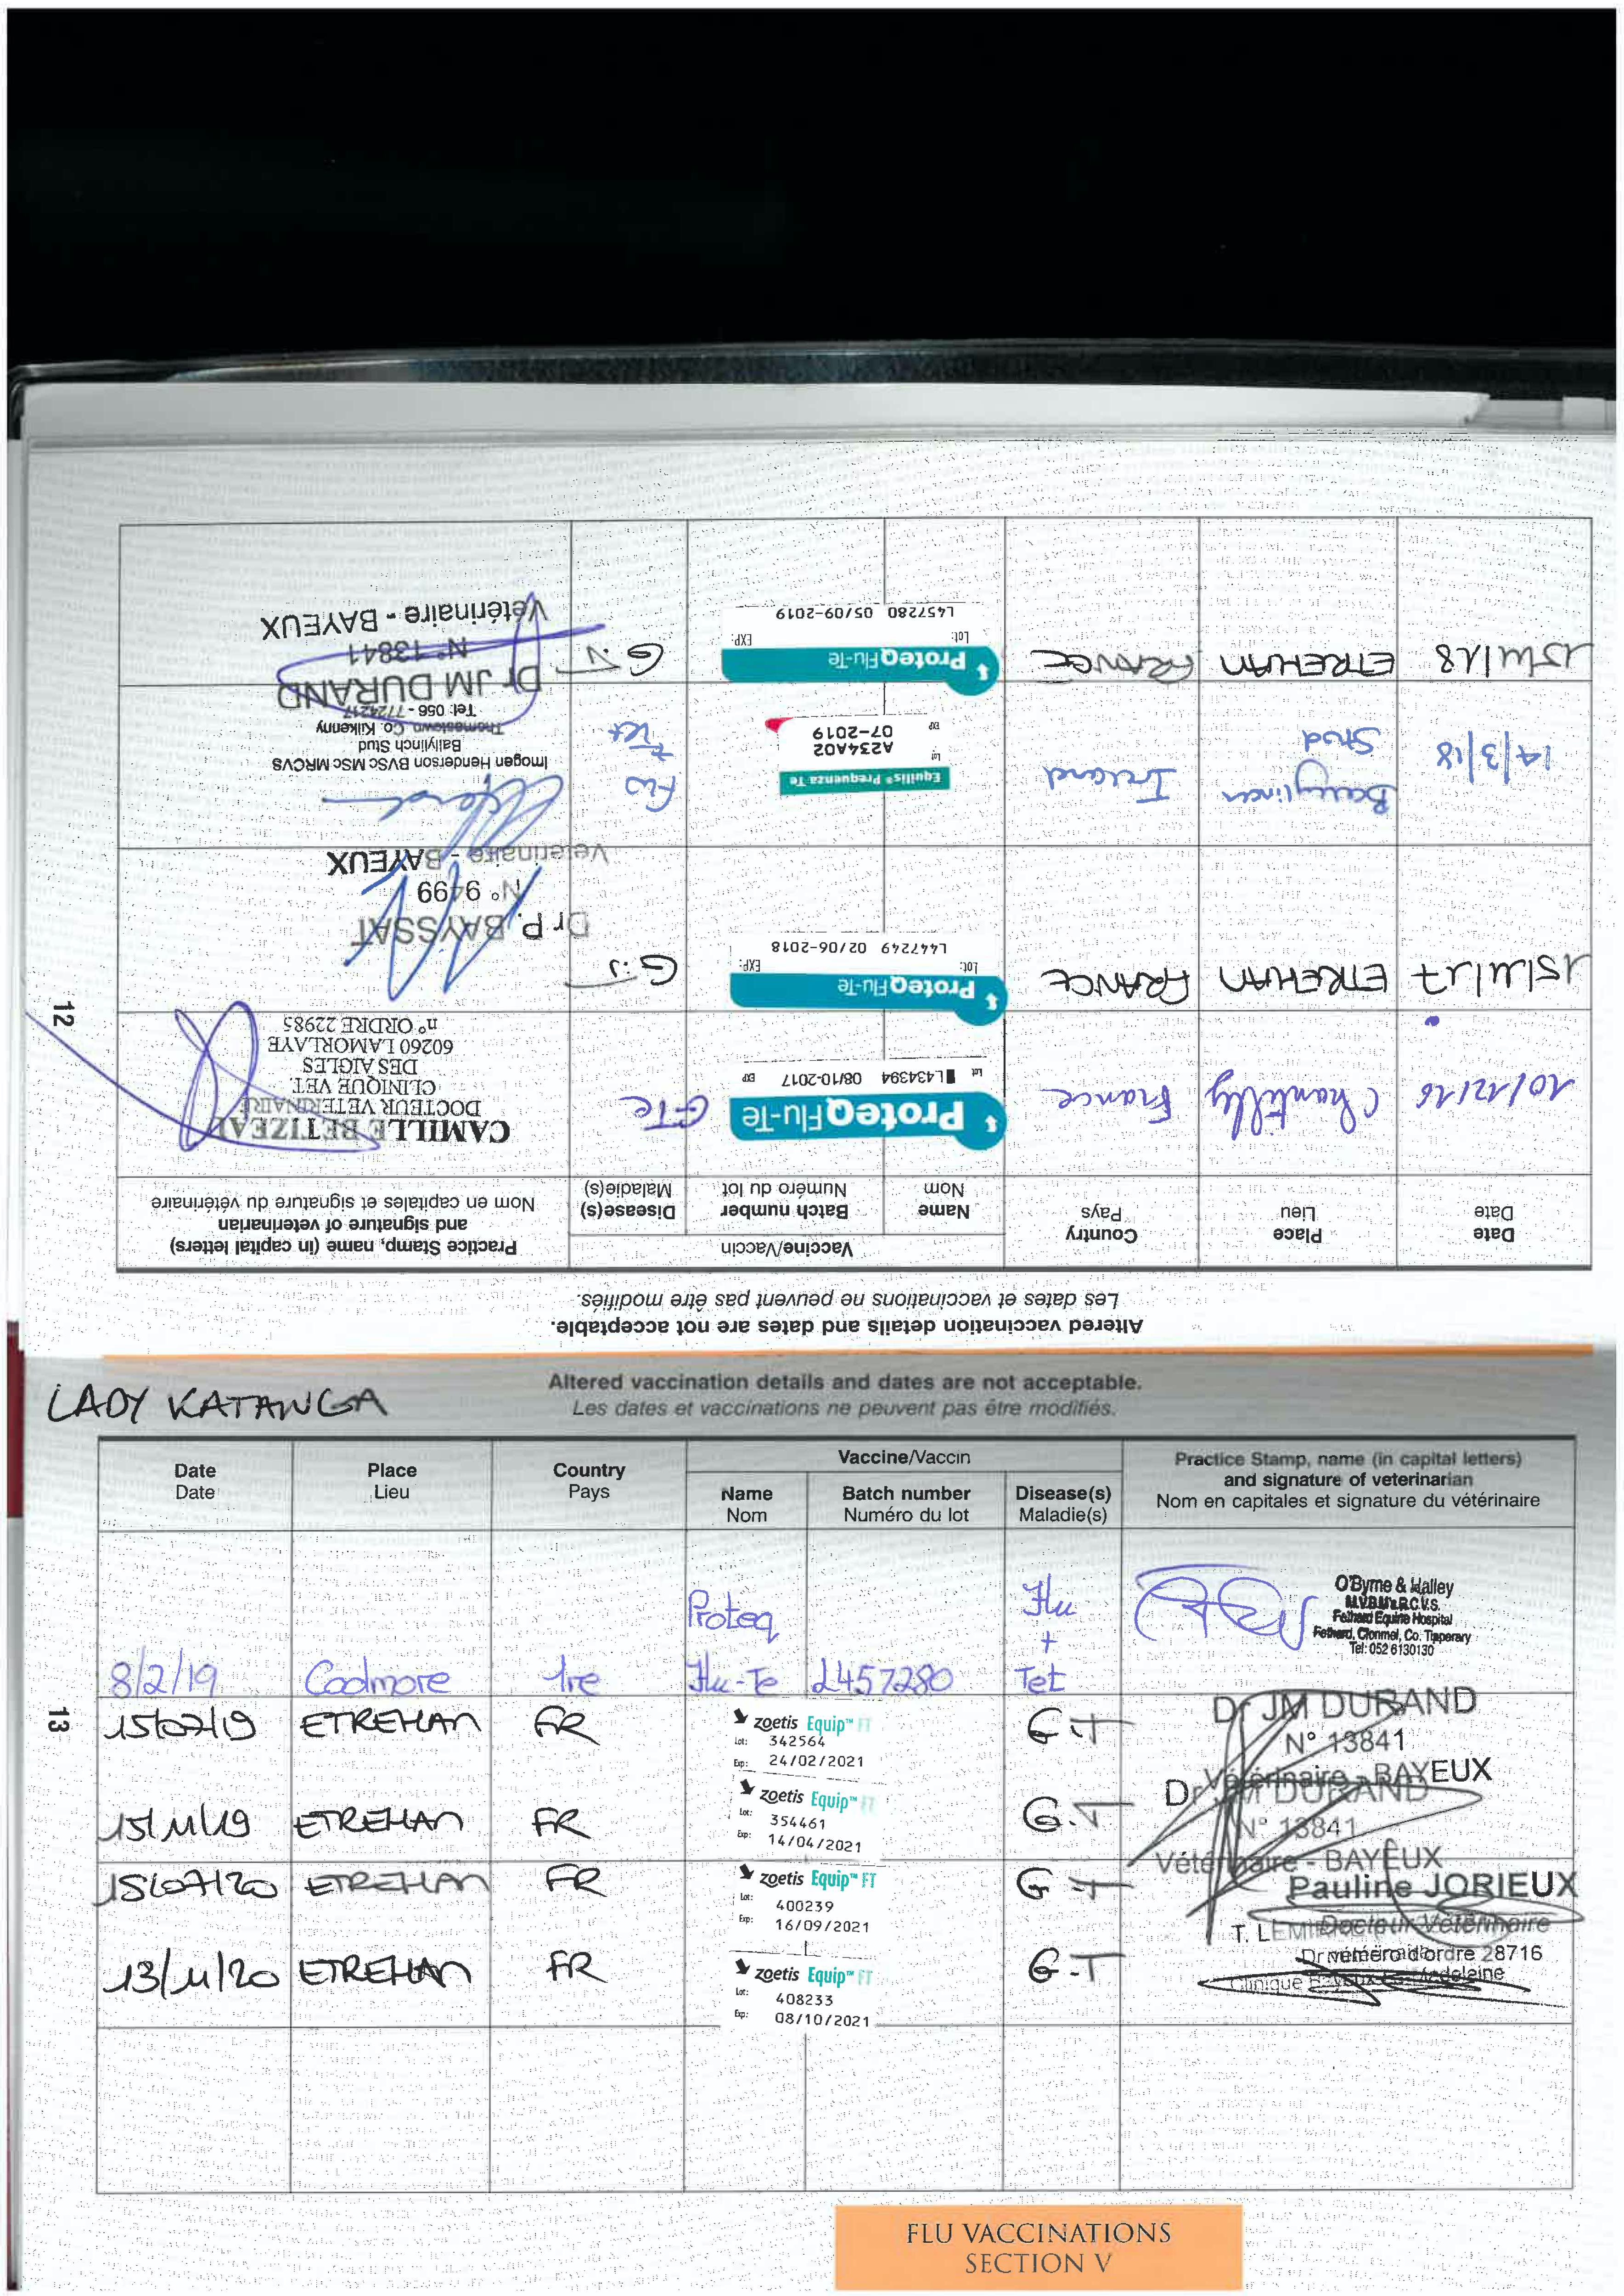 12
Altered vaccination details and dates are not acceptable.
Les dates et vaccinations ne peuvent pas être modifiés.
Date
Date
Place
Lieu
Country
Pays
Vaccine/Vaccin
Name
Nom
Batch number
Numéro du lot
Disease(s)
Maladie(s)
Practice Stamp, name (in capital letters)
and signature of veterinarian
Nom en capitales et signature du vétérinaire
10/12/16 Chantilly France
ProteqFlu-Te
Lot L434394 08/10-2017 EXP
GTe
CAMILLE BETIZEAU
DOCTEUR VETERINAIRE
CLINIQUE VET.
DES AIGLES
60260 LAMORLAYE
n° ORDRE 22985
15/11/17 ETREHAM FRANCE
ProteqFlu-Te
Lot: EXP:
L447249 02/06-2018
G.T
Dr P. BAYSSAT
N° 9499
Vétérinaire - BAYEUX
14/3/18 Ballylinch
Stud
Ireland
Equilis® Prequenza Te
Lot
A234A02
EXP 07-2019
Flu
+ Tet
Imogen Henderson BVSc MSc MRCVS
Ballylinch Stud
Thomastown Co. Kilkenny
Tel: 056 - 7724217
15/11/18 ETREHAM FRANCE
ProteqFlu-Te
Lot: EXP:
L457280 05/09-2019
G.T
Dr JM DURAND
N° 13841
Vétérinaire - BAYEUX
LADY KATANGA
Altered vaccination details and dates are not acceptable.
Les dates et vaccinations ne peuvent pas être modifiés.
13
Date
Date
Place
Lieu
Country
Pays
Vaccine/Vaccin
Name
Nom
Batch number
Numéro du lot
Disease(s)
Maladie(s)
Practice Stamp, name (in capital letters)
and signature of veterinarian
Nom en capitales et signature du vétérinaire
8/2/19 Coolmore Ire
Proteq
Flu-Te L457280
Flu
+
Tet
O'Byrne & Halley
M.V.B. M.R.C.V.S.
Fethard Equine Hospital
Fethard, Clonmel, Co. Tipperary
Tel: 052 6130130
15/07/19 ETREHAM FR
zoetis Equip™ FT
Lot: 342564
Exp: 24/02/2021
G.T
Dr JM DURAND
N° 13841
Vétérinaire - BAYEUX
15/11/19 ETREHAM FR
zoetis Equip™ FT
Lot: 354461
Exp: 14/04/2021
G.T
Dr JM DURAND
N° 13841
Vétérinaire - BAYEUX
15/07/20 ETREHAM FR
zoetis Equip™ FT
Lot: 400239
Exp: 16/09/2021
G.T
Pauline JORIEUX
Docteur Vétérinaire
numéro d'ordre 28716
13/11/20 ETREHAM FR
zoetis Equip™ FT
Lot: 408233
Exp: 08/10/2021
G.T
Clinique
FLU VACCINATIONS
SECTION V